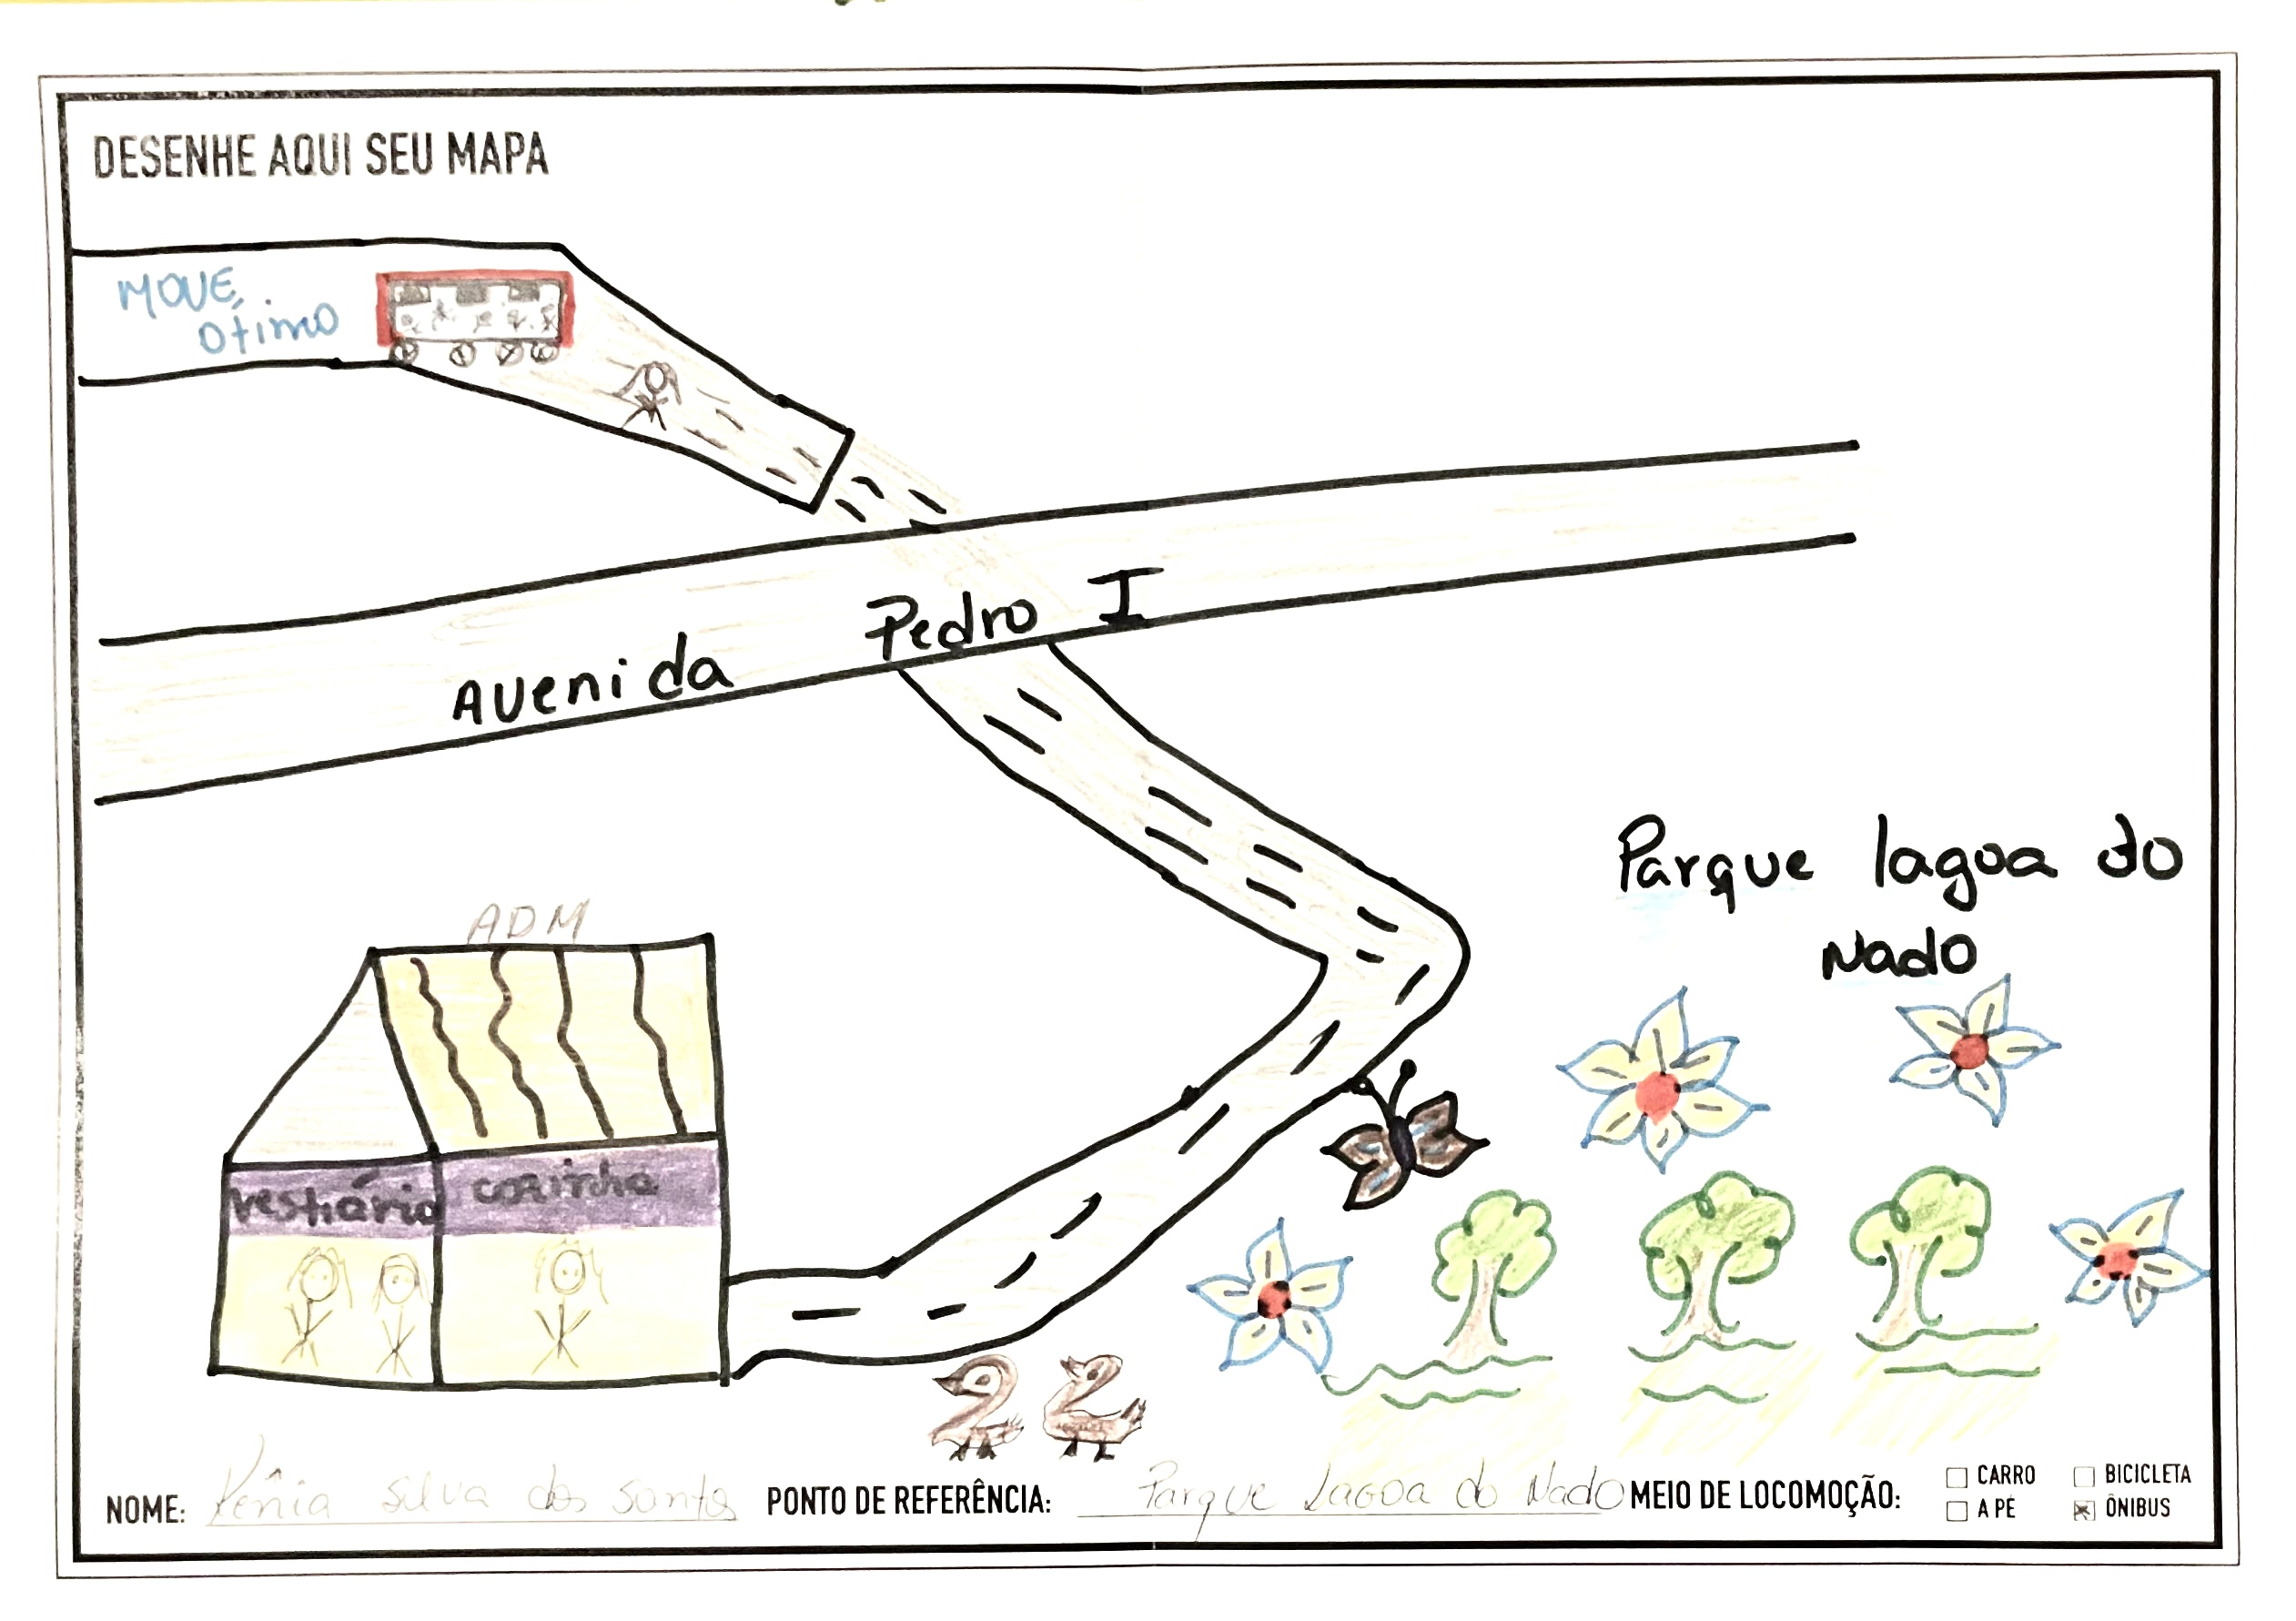 DESENHE AQUI SEU MAPA
MOVE,
otimo
Avenida Pedro I
Parque lagoa do
Nado
ADM
vestiário cozinha
NOME: Kênia Silva dos Santos PONTO DE REFERÊNCIA: Parque Lagoa do Nado MEIO DE LOCOMOÇÃO:
CARRO BICICLETA
A PÉ ÔNIBUS